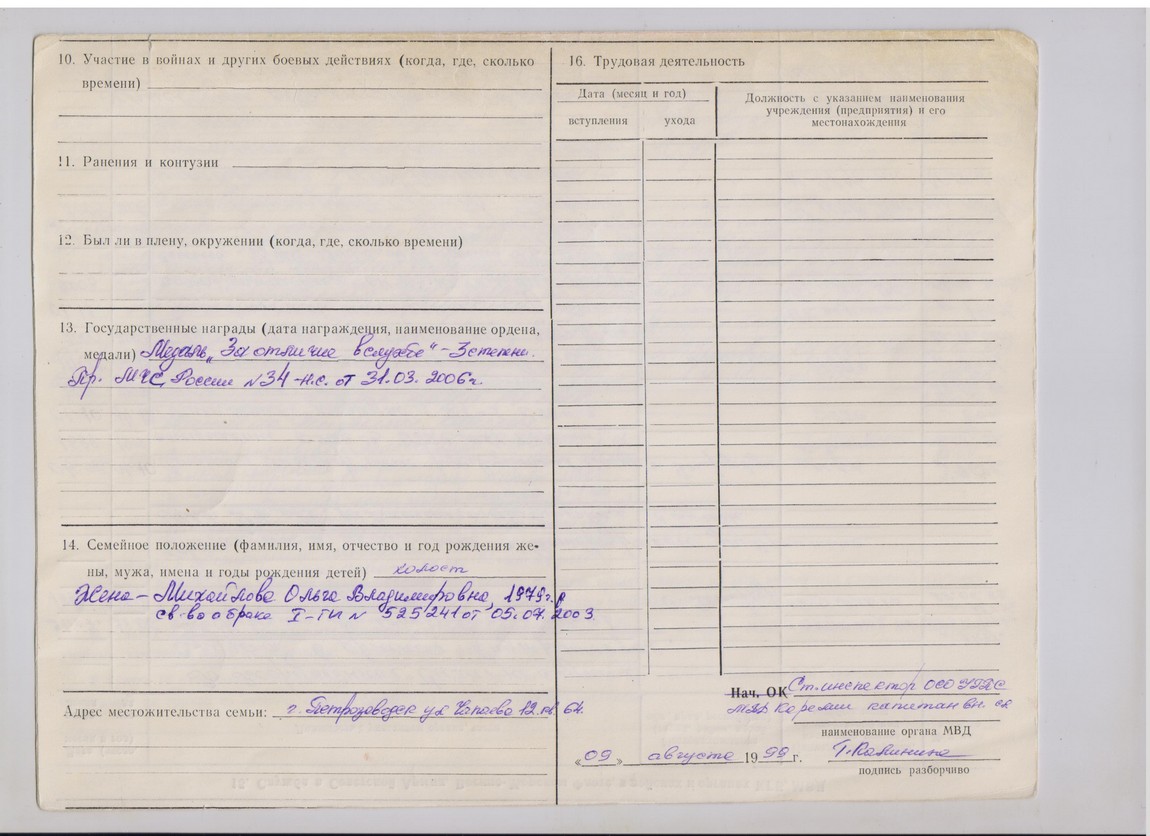 10. Участие в войнах и других боевых действиях (когда, где, сколько
времени)
11. Ранения и контузии
12. Был ли в плену, окружении (когда, где, сколько времени)
13. Государственные награды (дата награждения, наименование ордена,
медали) Медаль „За отличие в службе“ - 3 степени.
Пр. МЧС России №34-н.с. от 31.03.2006г.
14. Семейное положение (фамилия, имя, отчество и год рождения же-
ны, мужа, имена и годы рождения детей) холост
Жена – Михайлова Ольга Владимировна, 1979г.р
св-во о браке I-ГИ № 525241 от 05.07.2003
Адрес местожительства семьи: г. Петрозаводск ул Чапаева 12 кв. 64.
16. Трудовая деятельность
Дата (месяц и год)
вступления ухода
Должность с указанием наименования
учреждения (предприятия) и его
местонахождения
Нач. ОК Ст.инспектор ОСО
Карелии капитан вн. сл
наименование органа МВД
„09„ августа 1999г. Т.Калинина
подпись разборчиво